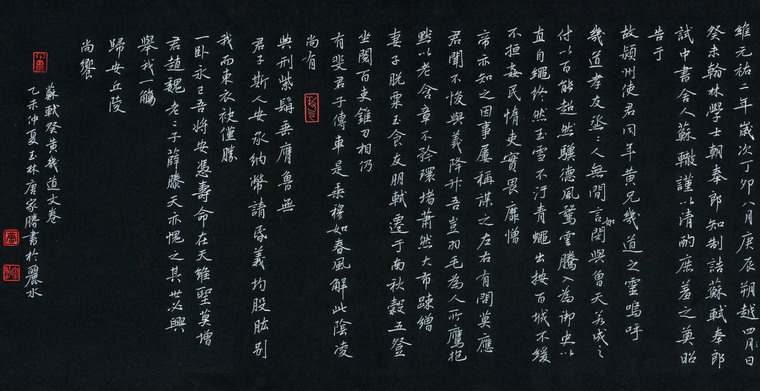 維元祐二年歲次丁卯八月庚辰朔越四月日
癸未翰林學士朝奉郎知制誥蘇軾奉郎
試中書舍人蘇轍謹以清酌庶羞之奠昭
告于
故潁州使君同年黃兄幾道之靈嗚呼
幾道孝友烝〻人無間言如閔與魯天若成之
付以百能超然驥德風騖雲騰入為御史以
直自繩終然玉雪不汙青蠅出按百城不緩
不拒姦民惰吏實畏靡憎
帝亦知之因事屢稱謀之左右有問莫應
君聞不悛與義降升吾豈羽毛為人所鷹抱
默以老含章不矜環堵蕭然大布疎繒
妻子脫粟玉食友朋軾遷于南秋穀五登
坐閱百吏錐刀相仍
有斐君子傳車是乘穆如春風解此陰凌
尚有
典刑紫髯垂膺魯無
君子斯人安承納幣請昏義均股肱別
我而東衣袂僅勝
一臥永已吾將安憑壽命在天雖聖莫增
君趙魏老〻于薛滕天亦愧之其世必興
舉我一觴
歸安丘陵
尚饗
蘇軾祭黃幾道文卷
乙未仲夏玉林唐家勝書於麗水